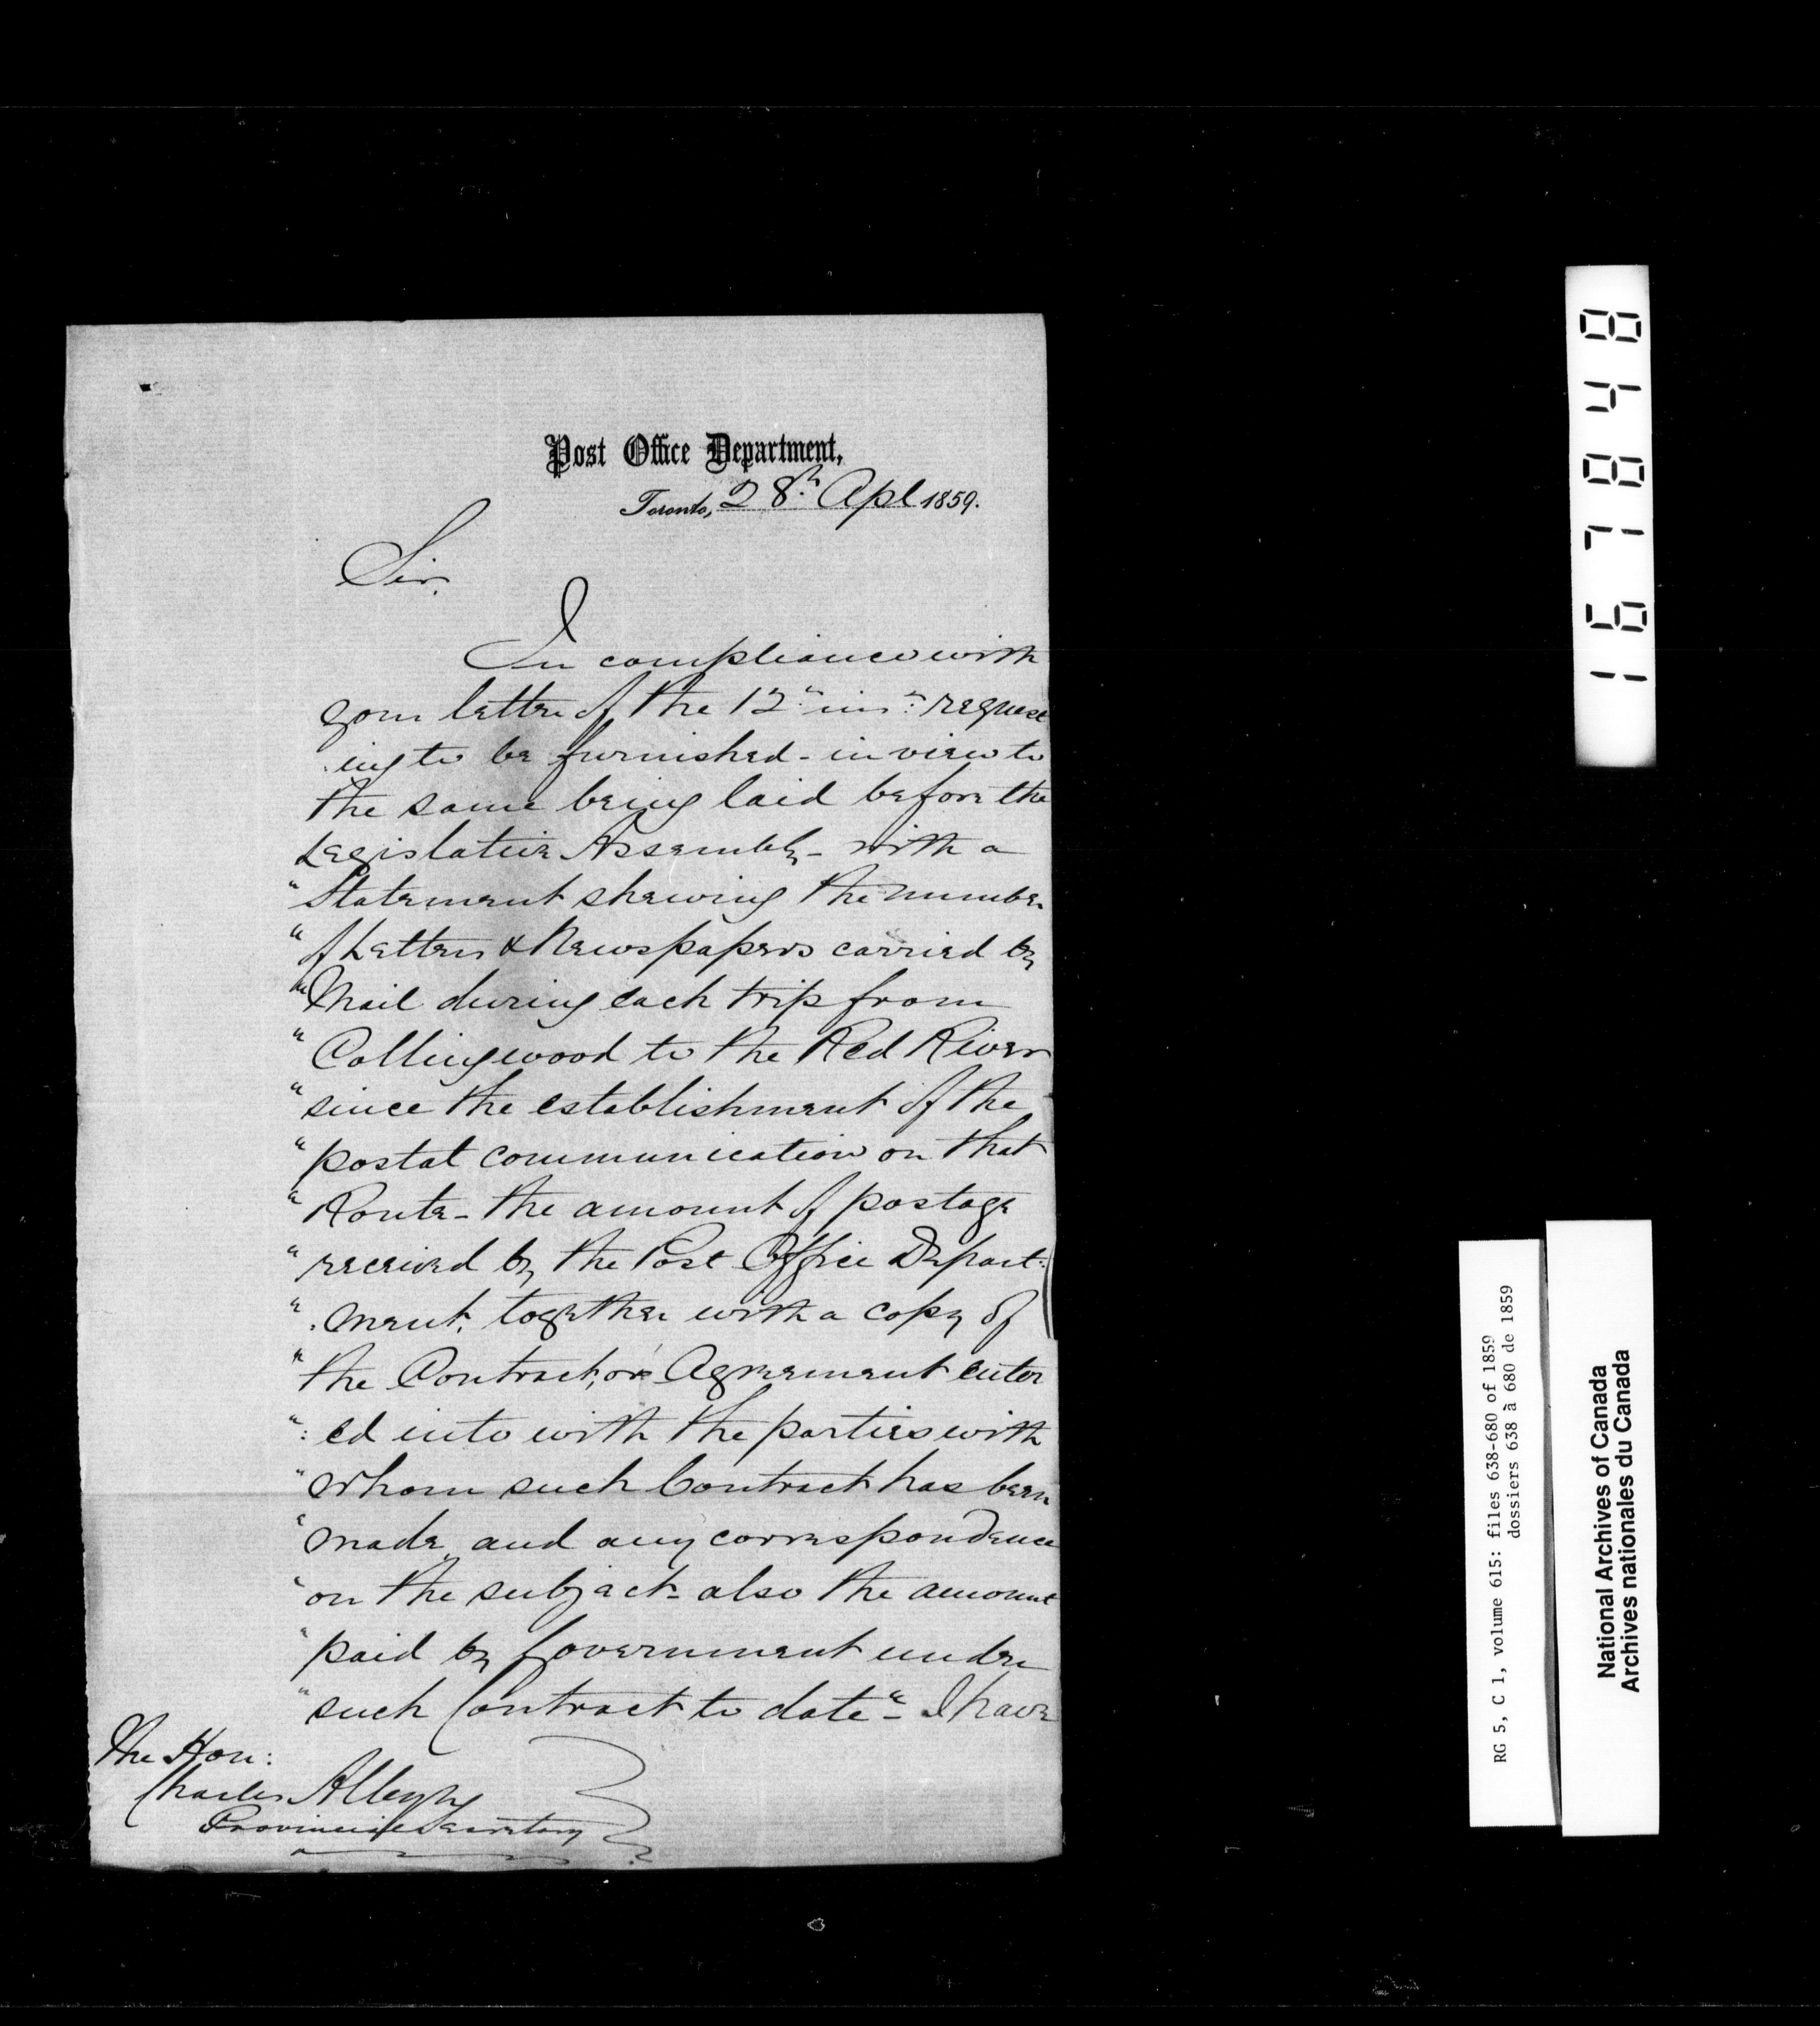 Post Office Department,
Toronto, 28th Apl 1859.
Sir,
In compliance with
your letter of the 12th inst: request
:ing to be furnished - in view to
the same being laid before the
Legislative Assembly - with a
"Statement shewing the number
"of Letters & Newspapers carried by
"Mail during each trip from
"Collingwood to the Red River
"since the establishment of the
"postal communication on that
"Route - the amount of postage
"received by the Post Office Depart:
":ment, together with a copy of
"the Contract, or Agreement enter
":ed into with the parties with
"whom such Contract has been
"made, and any correspondence
"on the subject - also the amount
"paid by Government under
"such Contract to date" - I have
The Hon:
Charles Alleyn
Provincial Secretary
167848
RG 5, C 1, volume 615: files 638-680 of 1859
dossiers 638 à 680 de 1859
National Archives of Canada
Archives nationales du Canada